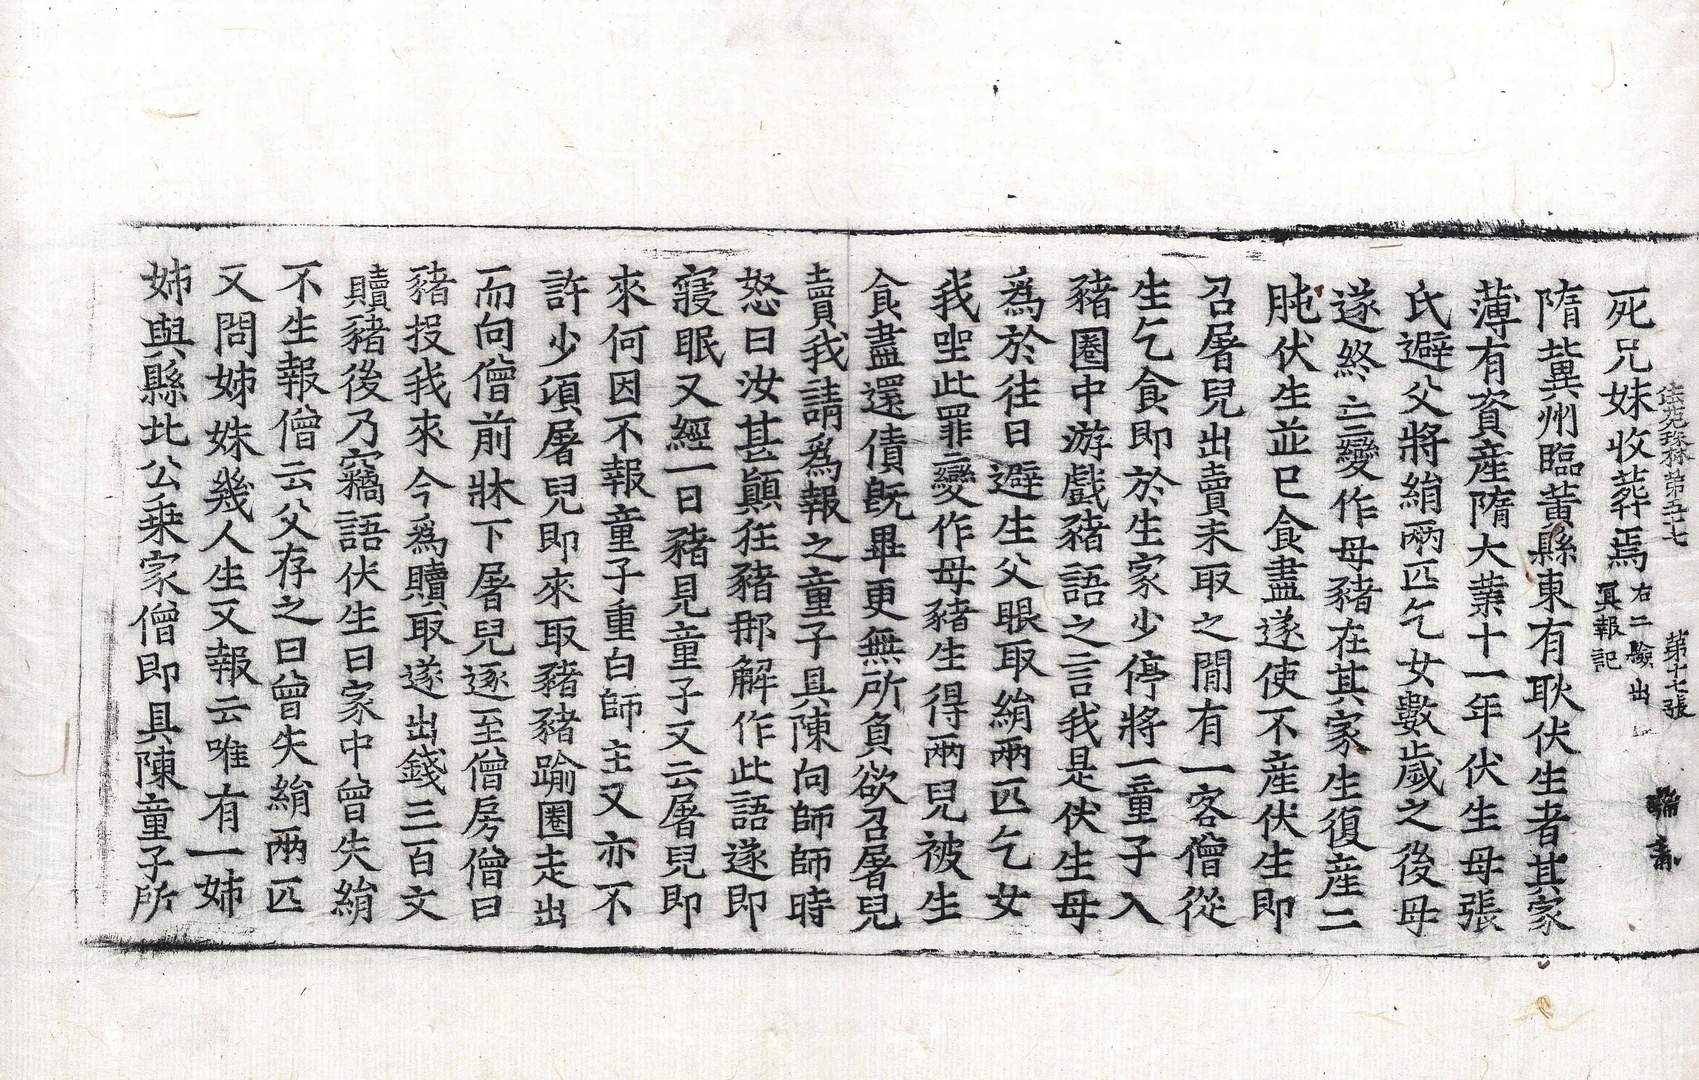 法苑珠林第五十七　第十七張
死兄妹收葬焉右二驗出冥報記
隋冀州臨黃縣東有耿伏生者其家
薄有資產隋大業十一年伏生母張
氏避父將絹兩匹乞女數歲之後母
遂終亡變作母豬在其家生復產二
肫伏生並已食盡遂使不產伏生即
召屠兒出賣未取之間有一客僧從
生乞食即於生家少停將一童子入
豬圈中游戲豬語之言我是伏生母
為於往日避生父眼取絹兩匹乞女
我坐此罪變作母豬生得兩兒被生
食盡還債既畢更無所負欲召屠兒
賣我請為報之童子具陳向師師時
怒曰汝甚顛狂豬那解作此語遂即
寢眠又經一日豬見童子又云屠兒即
來何因不報童子重白師主又亦不
許少頃屠兒即來取豬豬踰圈走出
而向僧前牀下屠兒逐至僧房僧曰
豬投我來今為贖取遂出錢三百文
贖豬後乃竊語伏生曰家中曾失絹
不生報僧云父存之日曾失絹兩匹
又問姊妹幾人生又報云唯有一姊
姊與縣北公乘家僧即具陳童子所